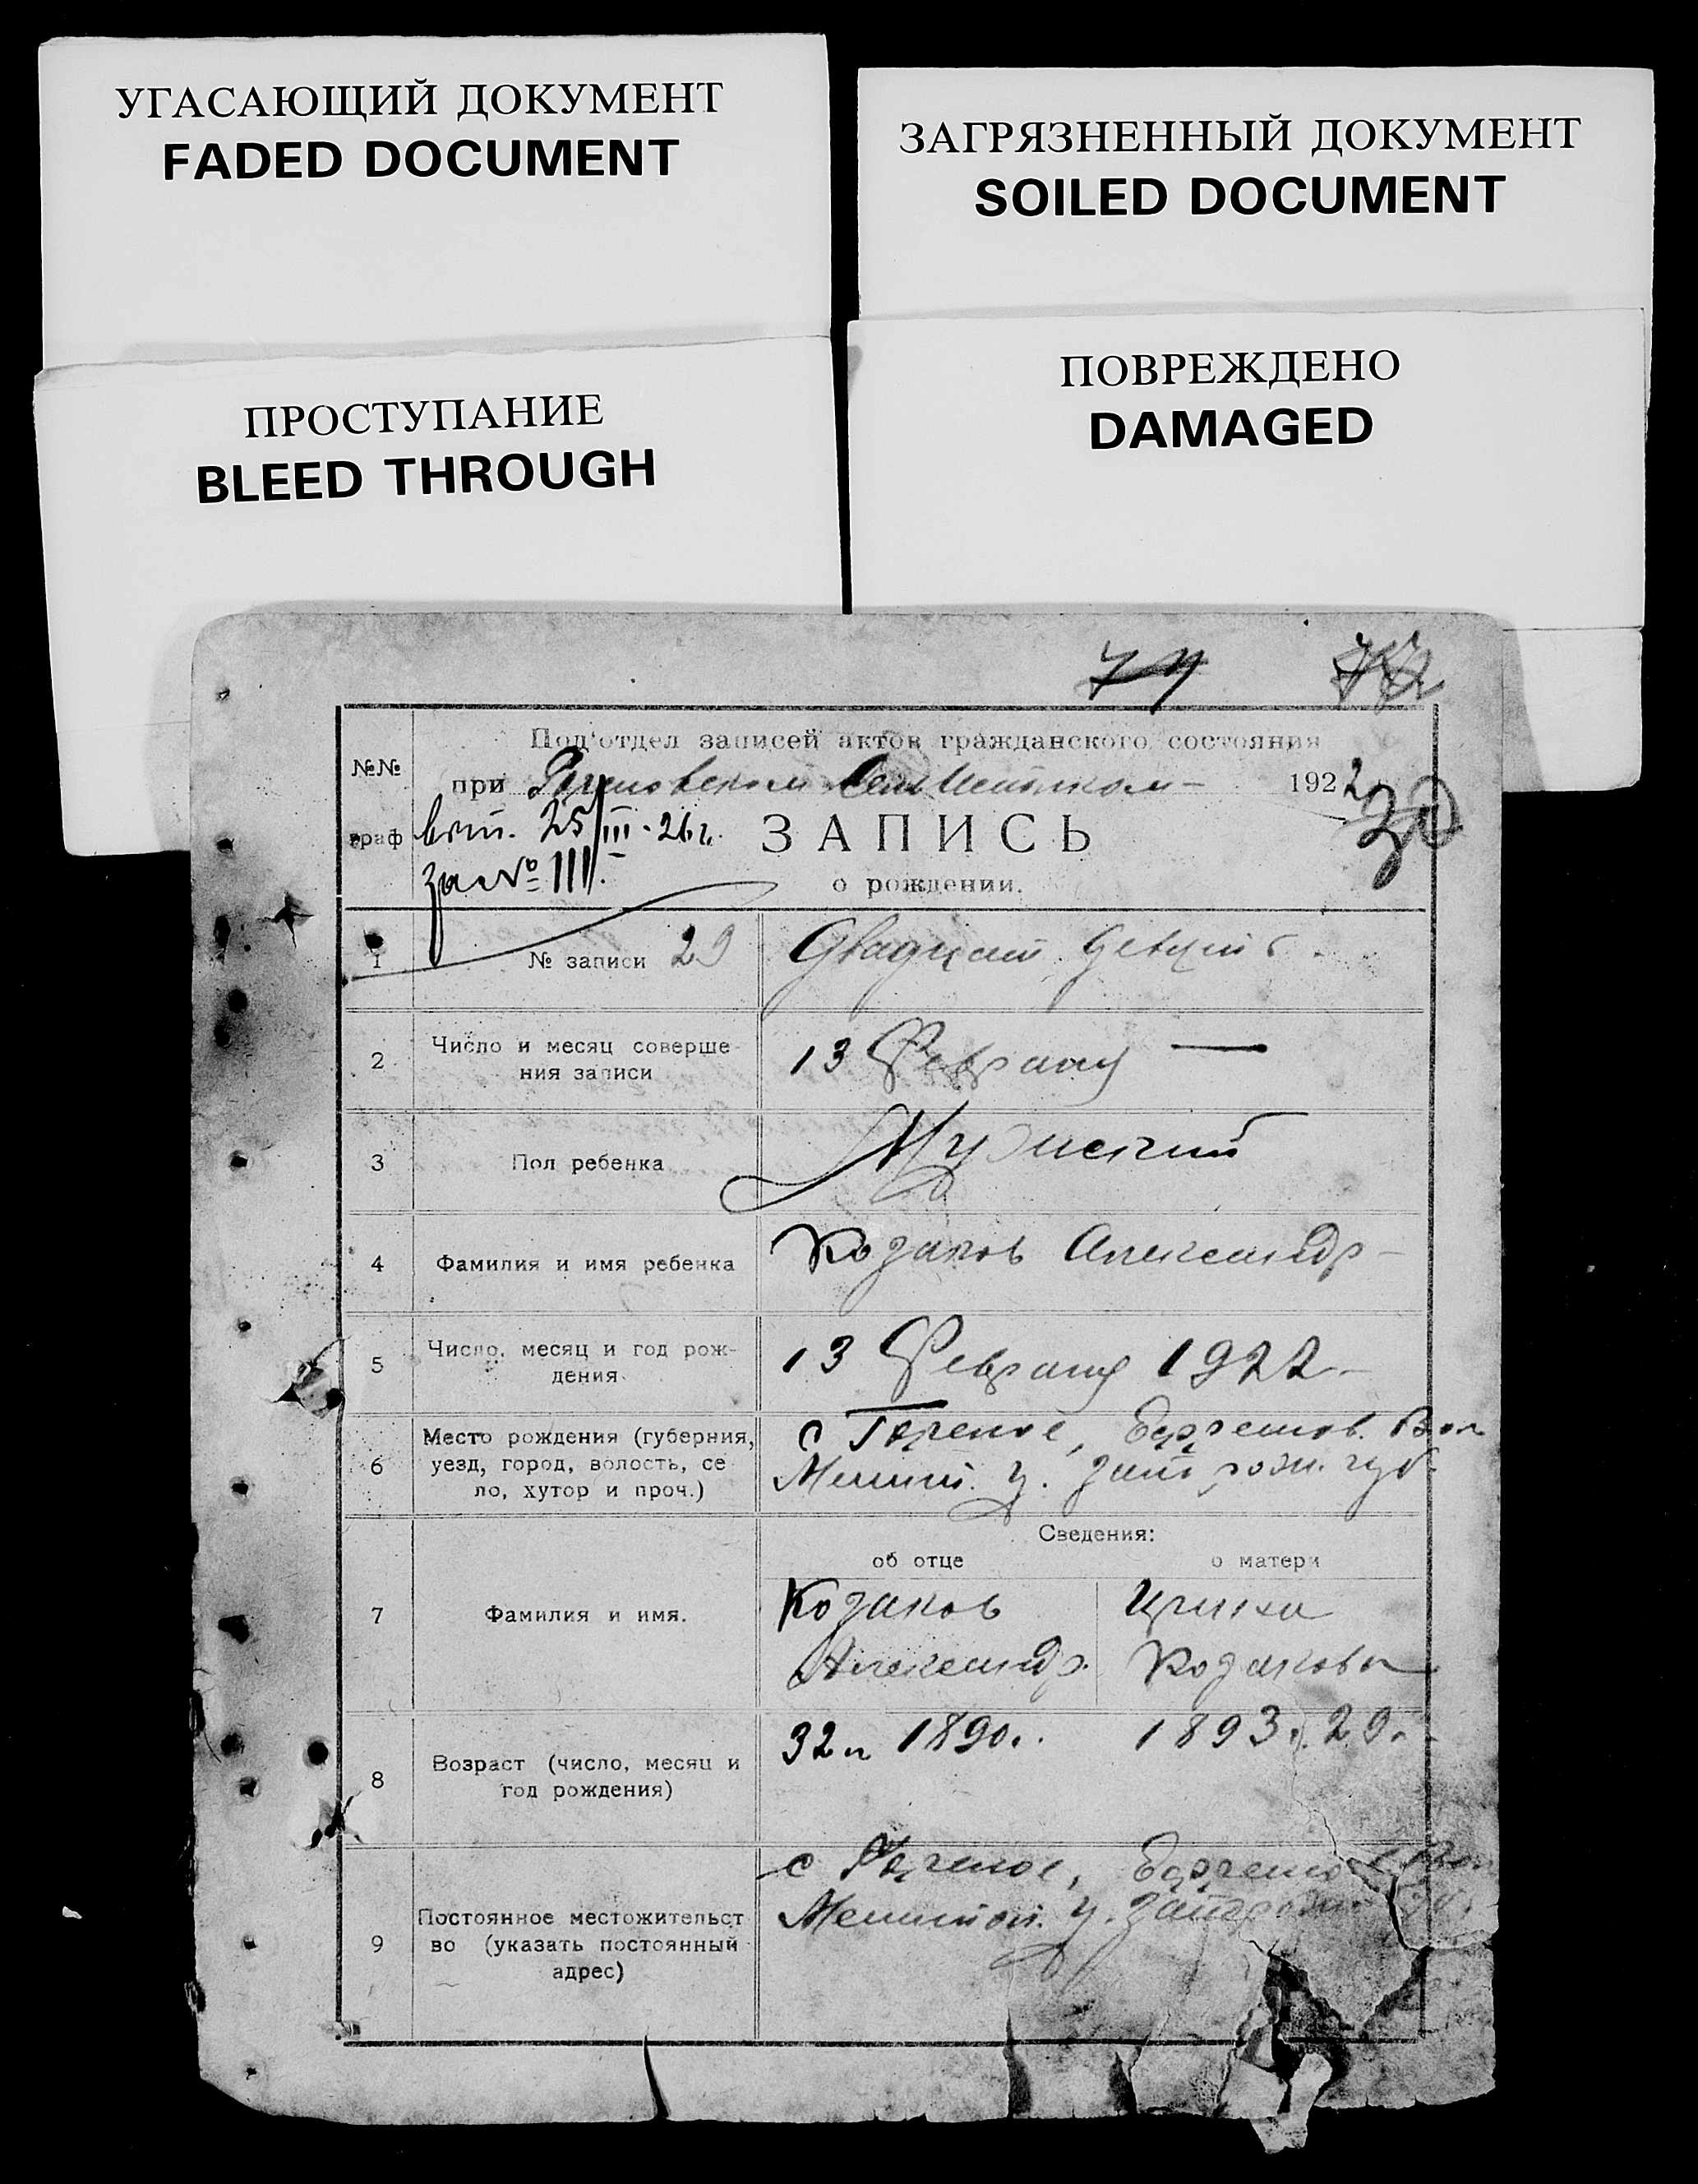 УГАСАЮЩИЙ ДОКУМЕНТ
FADED DOCUMENT
ЗАГРЯЗНЕННЫЙ ДОКУМЕНТ
SOILED DOCUMENT
ПРОСТУПАНИЕ
BLEED THROUGH
ПОВРЕЖДЕНО
DAMAGED
Под'отдел записей актов гражданского состояния
№№ при 1922
30
граф 25/III-26 г. ЗАПИСЬ
за № 111.
о рождении.
1 № записи 29 Двадцать девять
2 Число и месяц соверше-
ния записи
13 Февраля —
3 Пол ребенка Мужеский
4 Фамилия и имя ребенка Козаков Александр
5 Число, месяц и год рож-
дения
13 Февраля 1922
6 Место рождения (губерния,
уезд, город, волость, се
ло, хутор и проч.)
с Вол
у. губ.
Сведения:
об отце о матери
7 Фамилия и имя.
Козаков
Александр.
Козакова
8 Возраст (число, месяц и
год рождения)
32 л 1890. 1893. 29.
9 Постоянное местожительст
во (указать постоянный
адрес)
с
у.